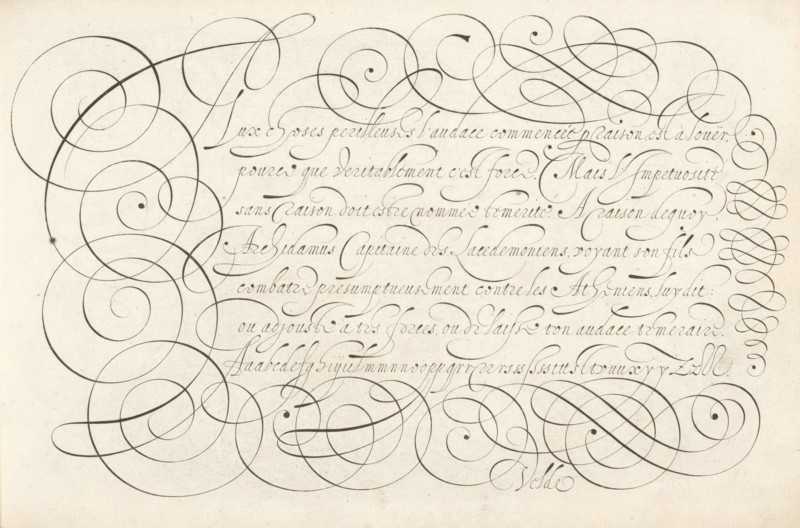 Aux choses perilleuses l'audace commencée p raison, est à louër,
pource que veritablement c'est force. Mais l'Impetuosité
sans raison doit estre nommée temerité. A raison dequoy,
Archidamus Capitaine des Lacedemoniens, voyant son fils
combatre presumptueusement contre les Atheniens, luy dit:
ou adjouste à tes forces, ou delaisse ton audace temeraire.
Velde